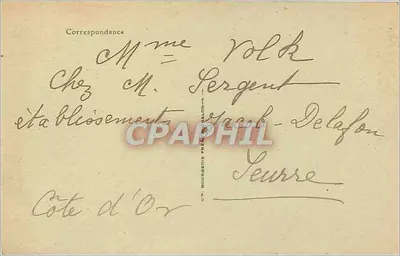 Correspondance
Mme Volk
Chez M. Sergent
établissements Jacob-Delafon
CPAPHIL
Seurre
Côte d'Or